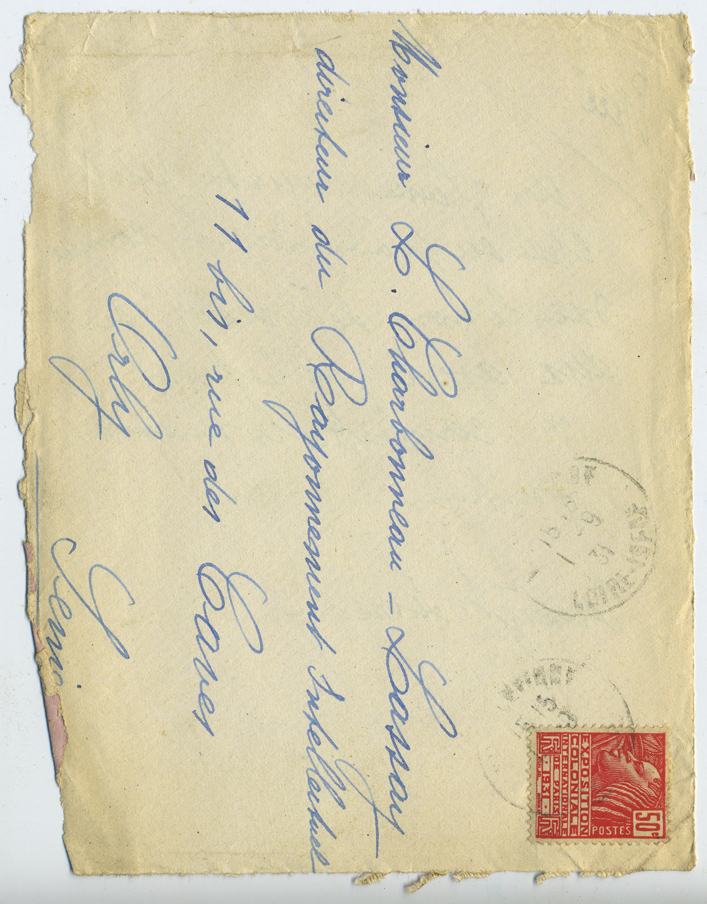 Monsieur L. Charbonneau-Lassay
directeur du Rayonnement Intellectuel
11 bis, rue des Caves
Orly
Sein
EXPOSITION
COLONIALE
INTERNATIONALE
DE PARIS
1931
POSTES
50c
LOIRE-INFRE